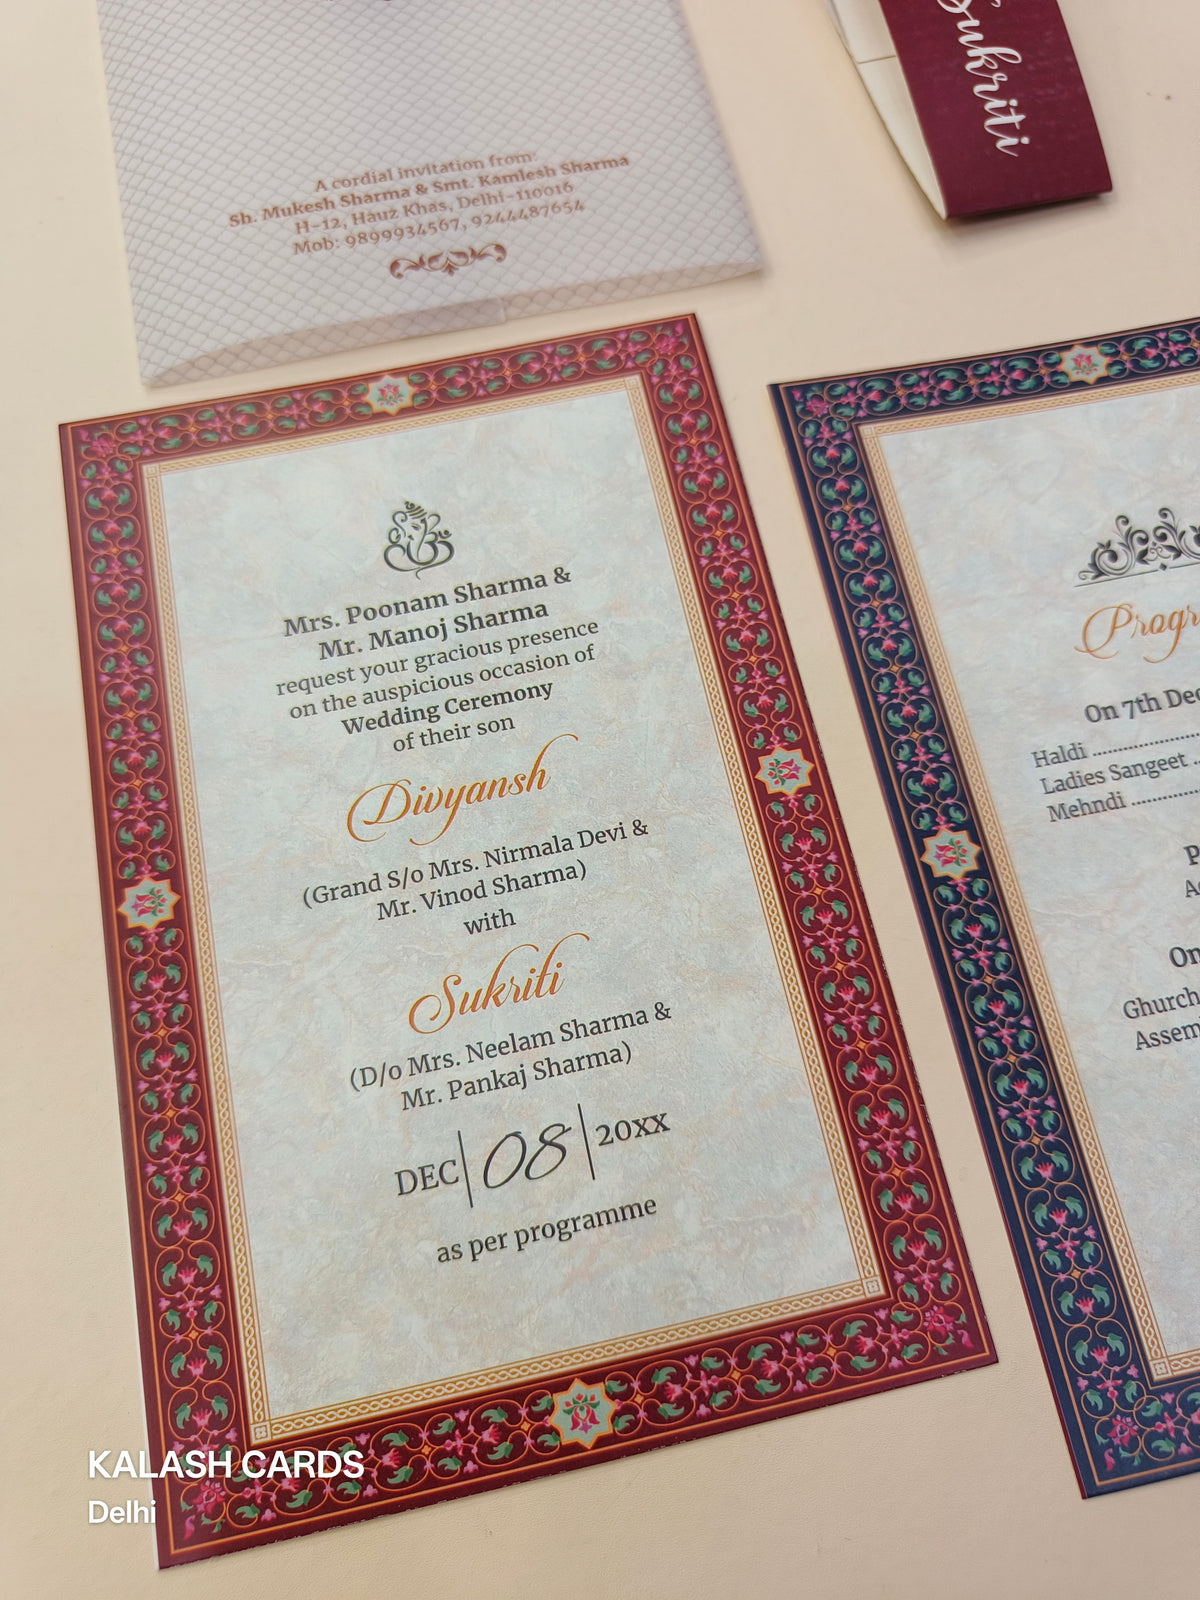 Sukriti
A cordial invitation from:
Sh. Mukesh Sharma & Smt. Kamlesh Sharma
H-12, Hauz Khas, Delhi-110016
Mob: 9899934567, 9244487654
Mrs. Poonam Sharma &
Mr. Manoj Sharma
request your gracious presence
on the auspicious occasion of
Wedding Ceremony
of their son
Divyansh
(Grand S/o Mrs. Nirmala Devi &
Mr. Vinod Sharma)
with
Sukriti
(D/o Mrs. Neelam Sharma &
Mr. Pankaj Sharma)
DEC | 08 | 20XX
as per programme
On 7th
Haldi ..............
Ladies Sangeet ..
Mehndi ..............
On
KALASH CARDS
Delhi